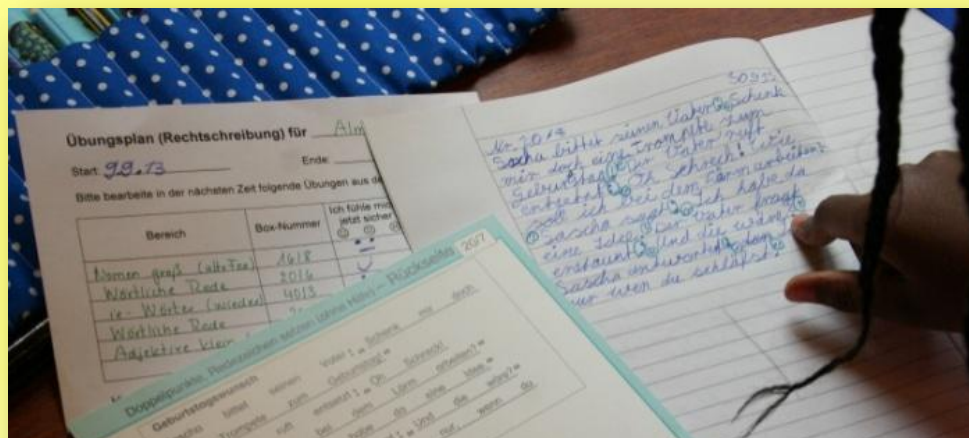 Übungsplan (Rechtschreibung) für Alm
Start: 9.9.13 Ende:
Bitte bearbeite in der nächsten Zeit folgende Übungen aus de
Bereich Box-Nummer Ich fühle mich
jetzt sicher
Nomen groß (alte Fee) 16/8
Wörtliche Rede 20/6
ie-Wörter (wieder) 40/3
Wörtliche Rede
Adjektive klein
Doppelpunkte, Redezeichen setzen (ohne Hilfe) – Rückseite 20/7
Geburtstagswunsch
Sascha bittet seinen Vater: „Schenk mir doch
Trompete zum Geburtstag!“
ruft entsetzt: „Oh Schreck!
bei dem Lärm arbeiten?“
habe da eine Idee.“
„Und die wäre?“
nur, wenn du
Nr. 20/7
Sascha bittet seinen Vater: „Schenk
mir doch eine Trompete zum
Geburtstag!“ Der Vater ruft
entsetzt: „Oh Schreck! Wie
soll ich bei dem Lärm arbeiten?“
Sascha sagt: „Ich habe da
eine Idee.“ Der Vater fragt
erstaunt: „Und die wäre?“
Sascha antwortet:
nur wen du schläfst.“